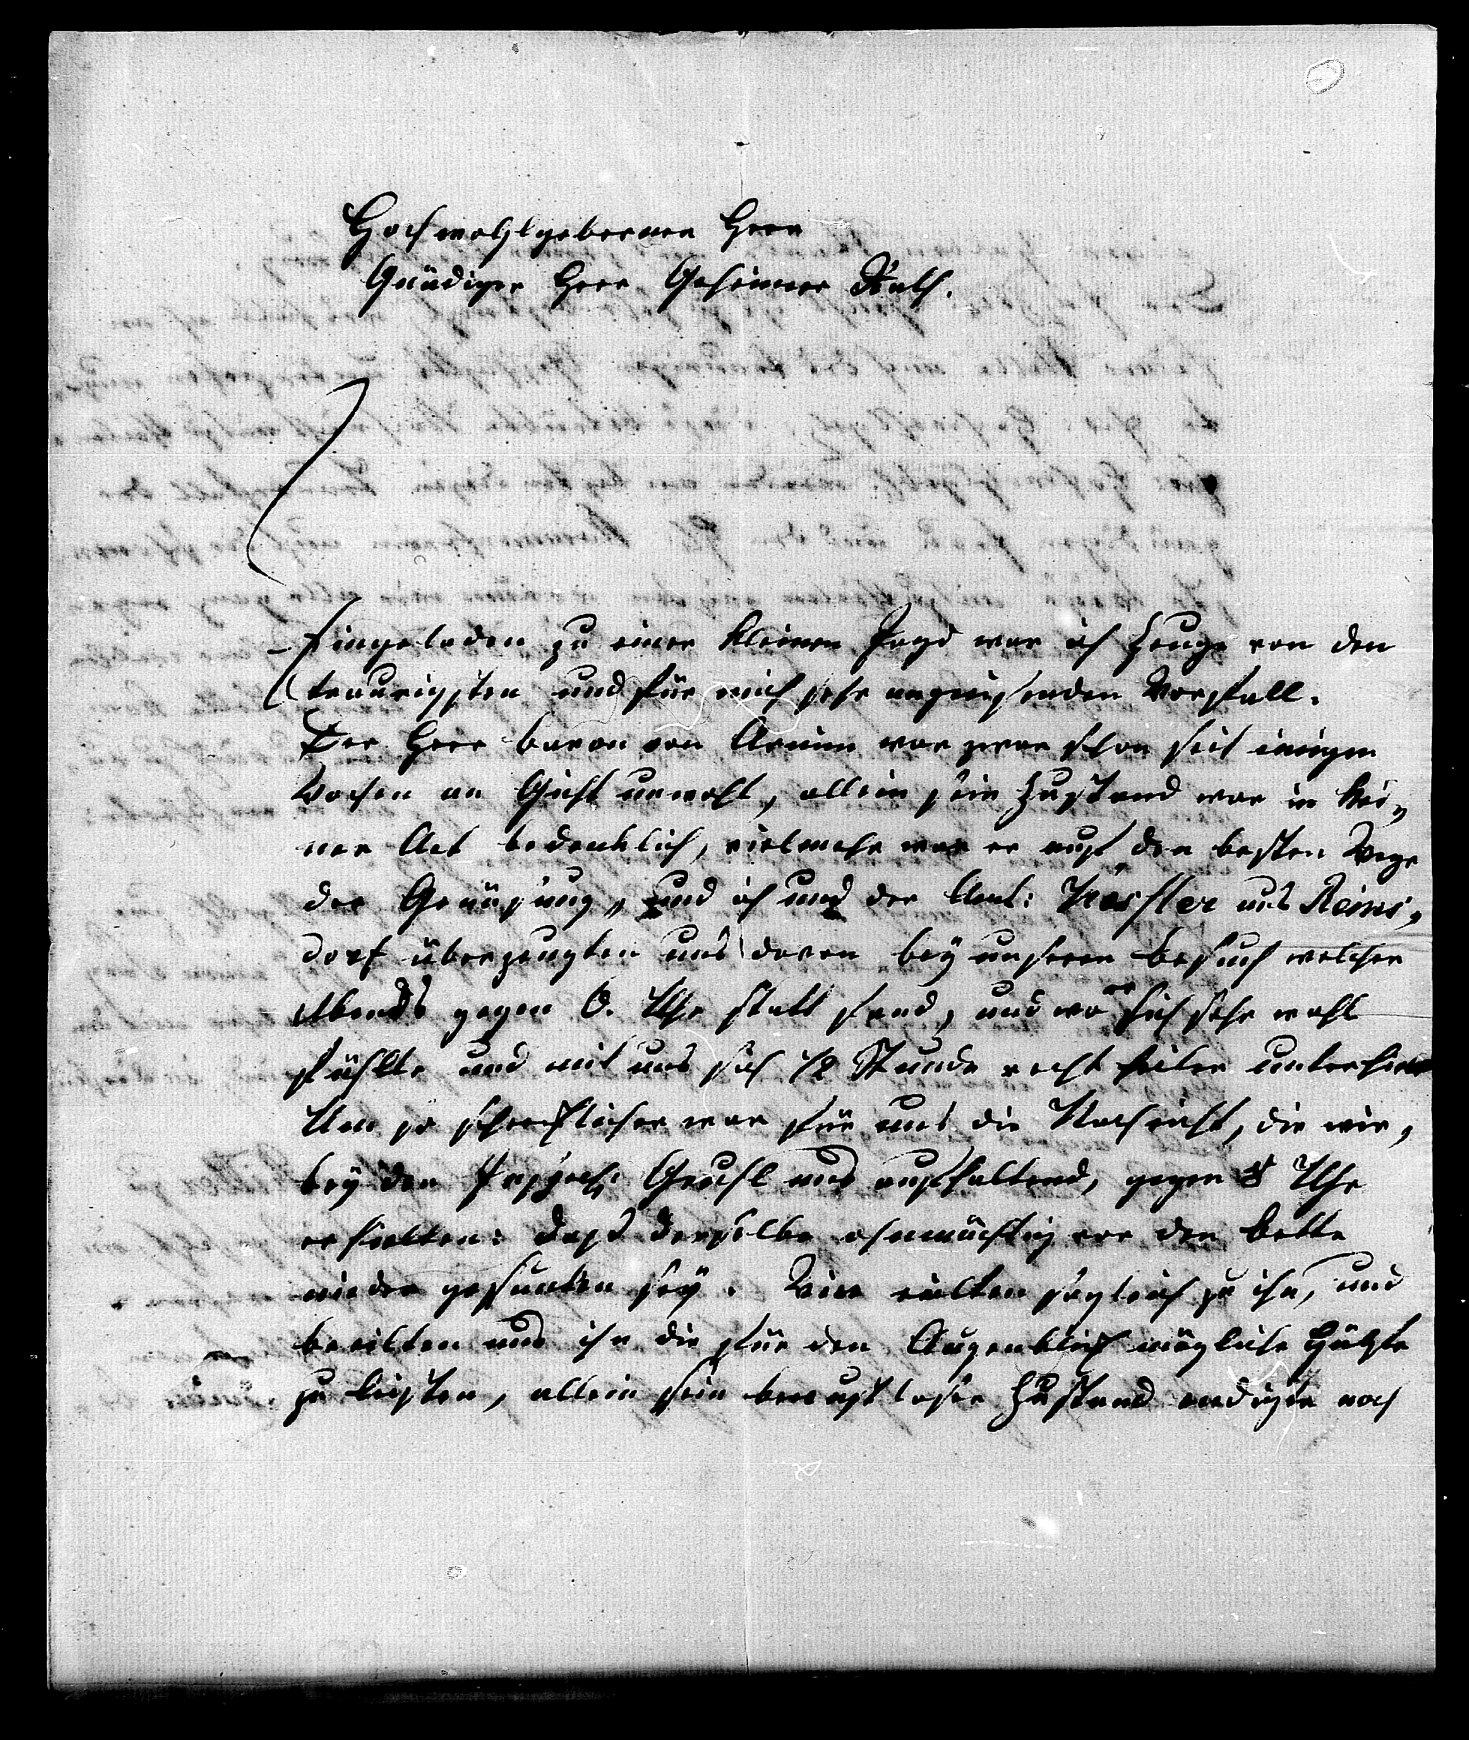 Hochwohlgeborner Herr
Gnädiger Herr Geheimer Rath.
Eingeladen zu einer kleinen Jagd war ich Zeuge von den
traurigsten und für mich sehr angreifenden Vorfall.
Der Herr baron von Arnim war zwar schon seit einigen
Wochen an Gicht unwohl, allein sein Zustand war in kei„
ner Art bedenklich, vielmehr war er auf den besten Wege
der Genäsung, und ich und der Amt: aus Reins„
dorf überzeugten uns davon bey unseren besuch welcher
Abends gegen 6. Uhr statt fand, und wo er sich sehr wohl
fühlte und mit uns sich 1/2 Stunde recht heiter unterhielt
Um so schrecklicher war für uns die Nachricht, die wir,
bey den uns aufhaltend, gegen 8 Uhr
erhielten: daß derselbe ohnmächtig vor den bette
nieder gesunken sey. Wir eilten sogleich zu ihn, und
beeilten uns ihn die für den Augenblick mögliche Hülfe
zu leisten, allein sein bewustloser Zustand endigte nach